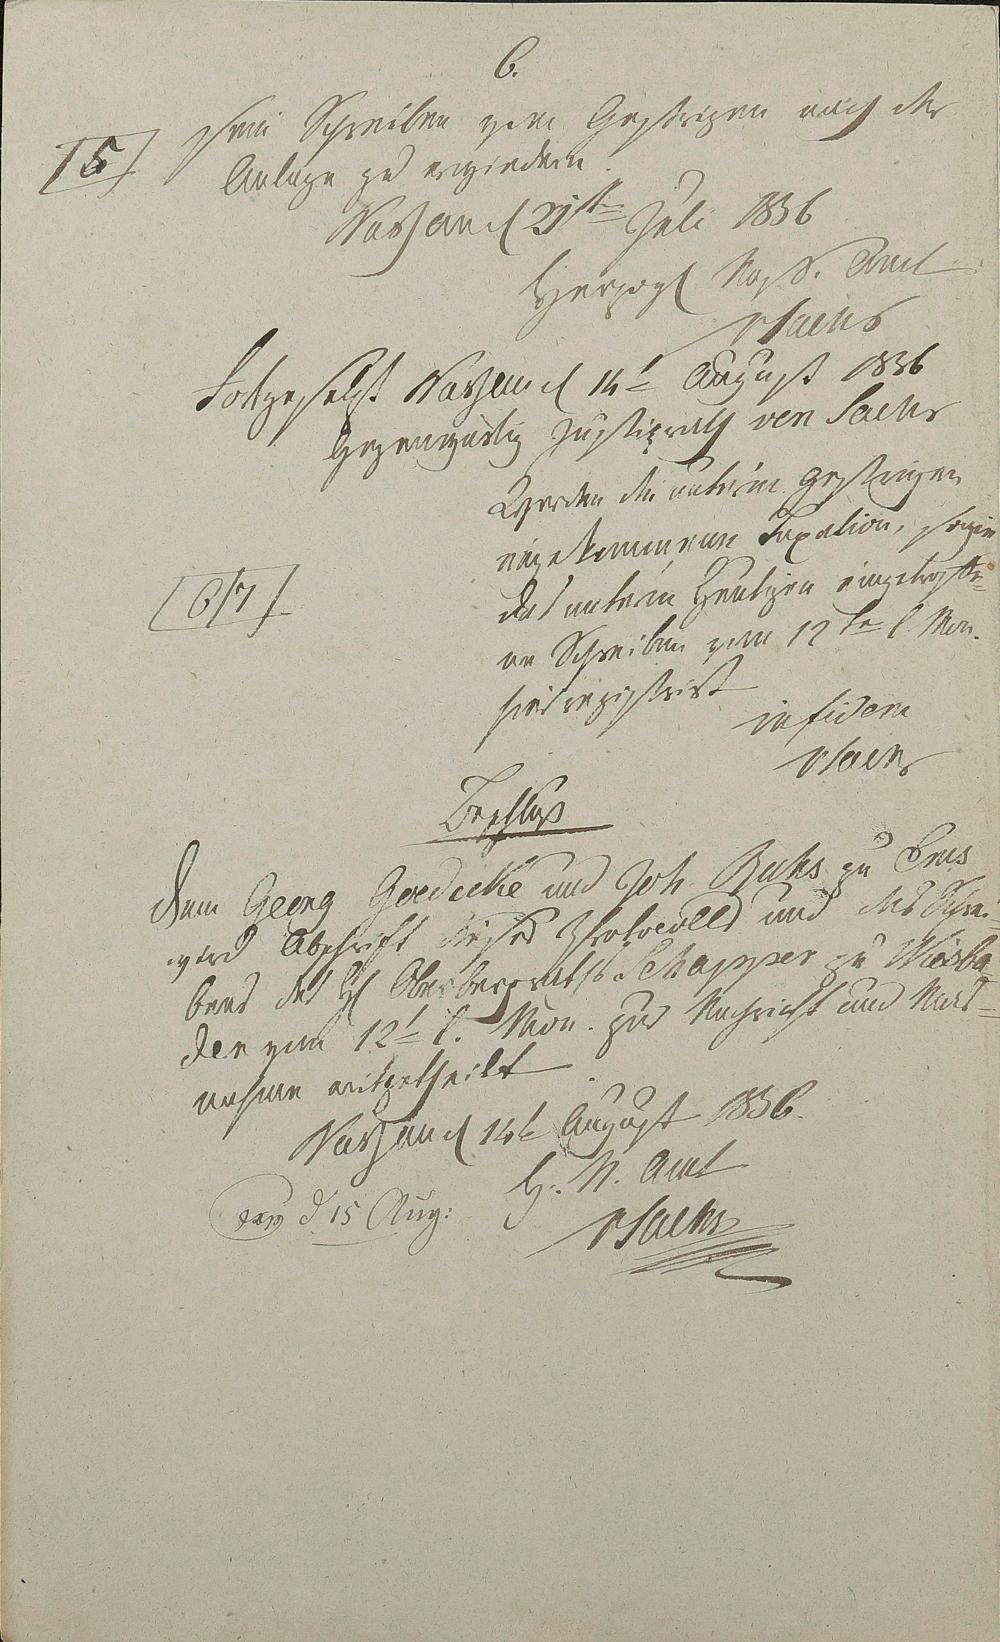 6.
sein Schreiben vom Gestrigen nach der
[5]
Anlage zu erwiedern.
Nassau d 21ten Juli 1836
Herzogl Nass. Amt
vSachs
Fortgesetzt Nassau d 14t August 1836
Gegenwärtig Justizrath von Sachs
Werden die unterm Gestrigen
eingekommene Taxation, sowie
[6/7]
das unterm Heutigen eingetroffe-
ne Schreiben vom 12ten l. Mon.
hier registrirt
in fidem
vSachs
Beschluß
Dem Georg Goedecke und Joh. zu Ems
wird Abschrift dieses Protocolls und des Schrei-
bens des H Oberbergraths Schapper zu Wiesba
den vom 12t l. Mon. zur Nachricht und
nahme mitgetheilt
Nassau d 14t August 1836.
H. N. Amt
d 15 Aug:
vSachs